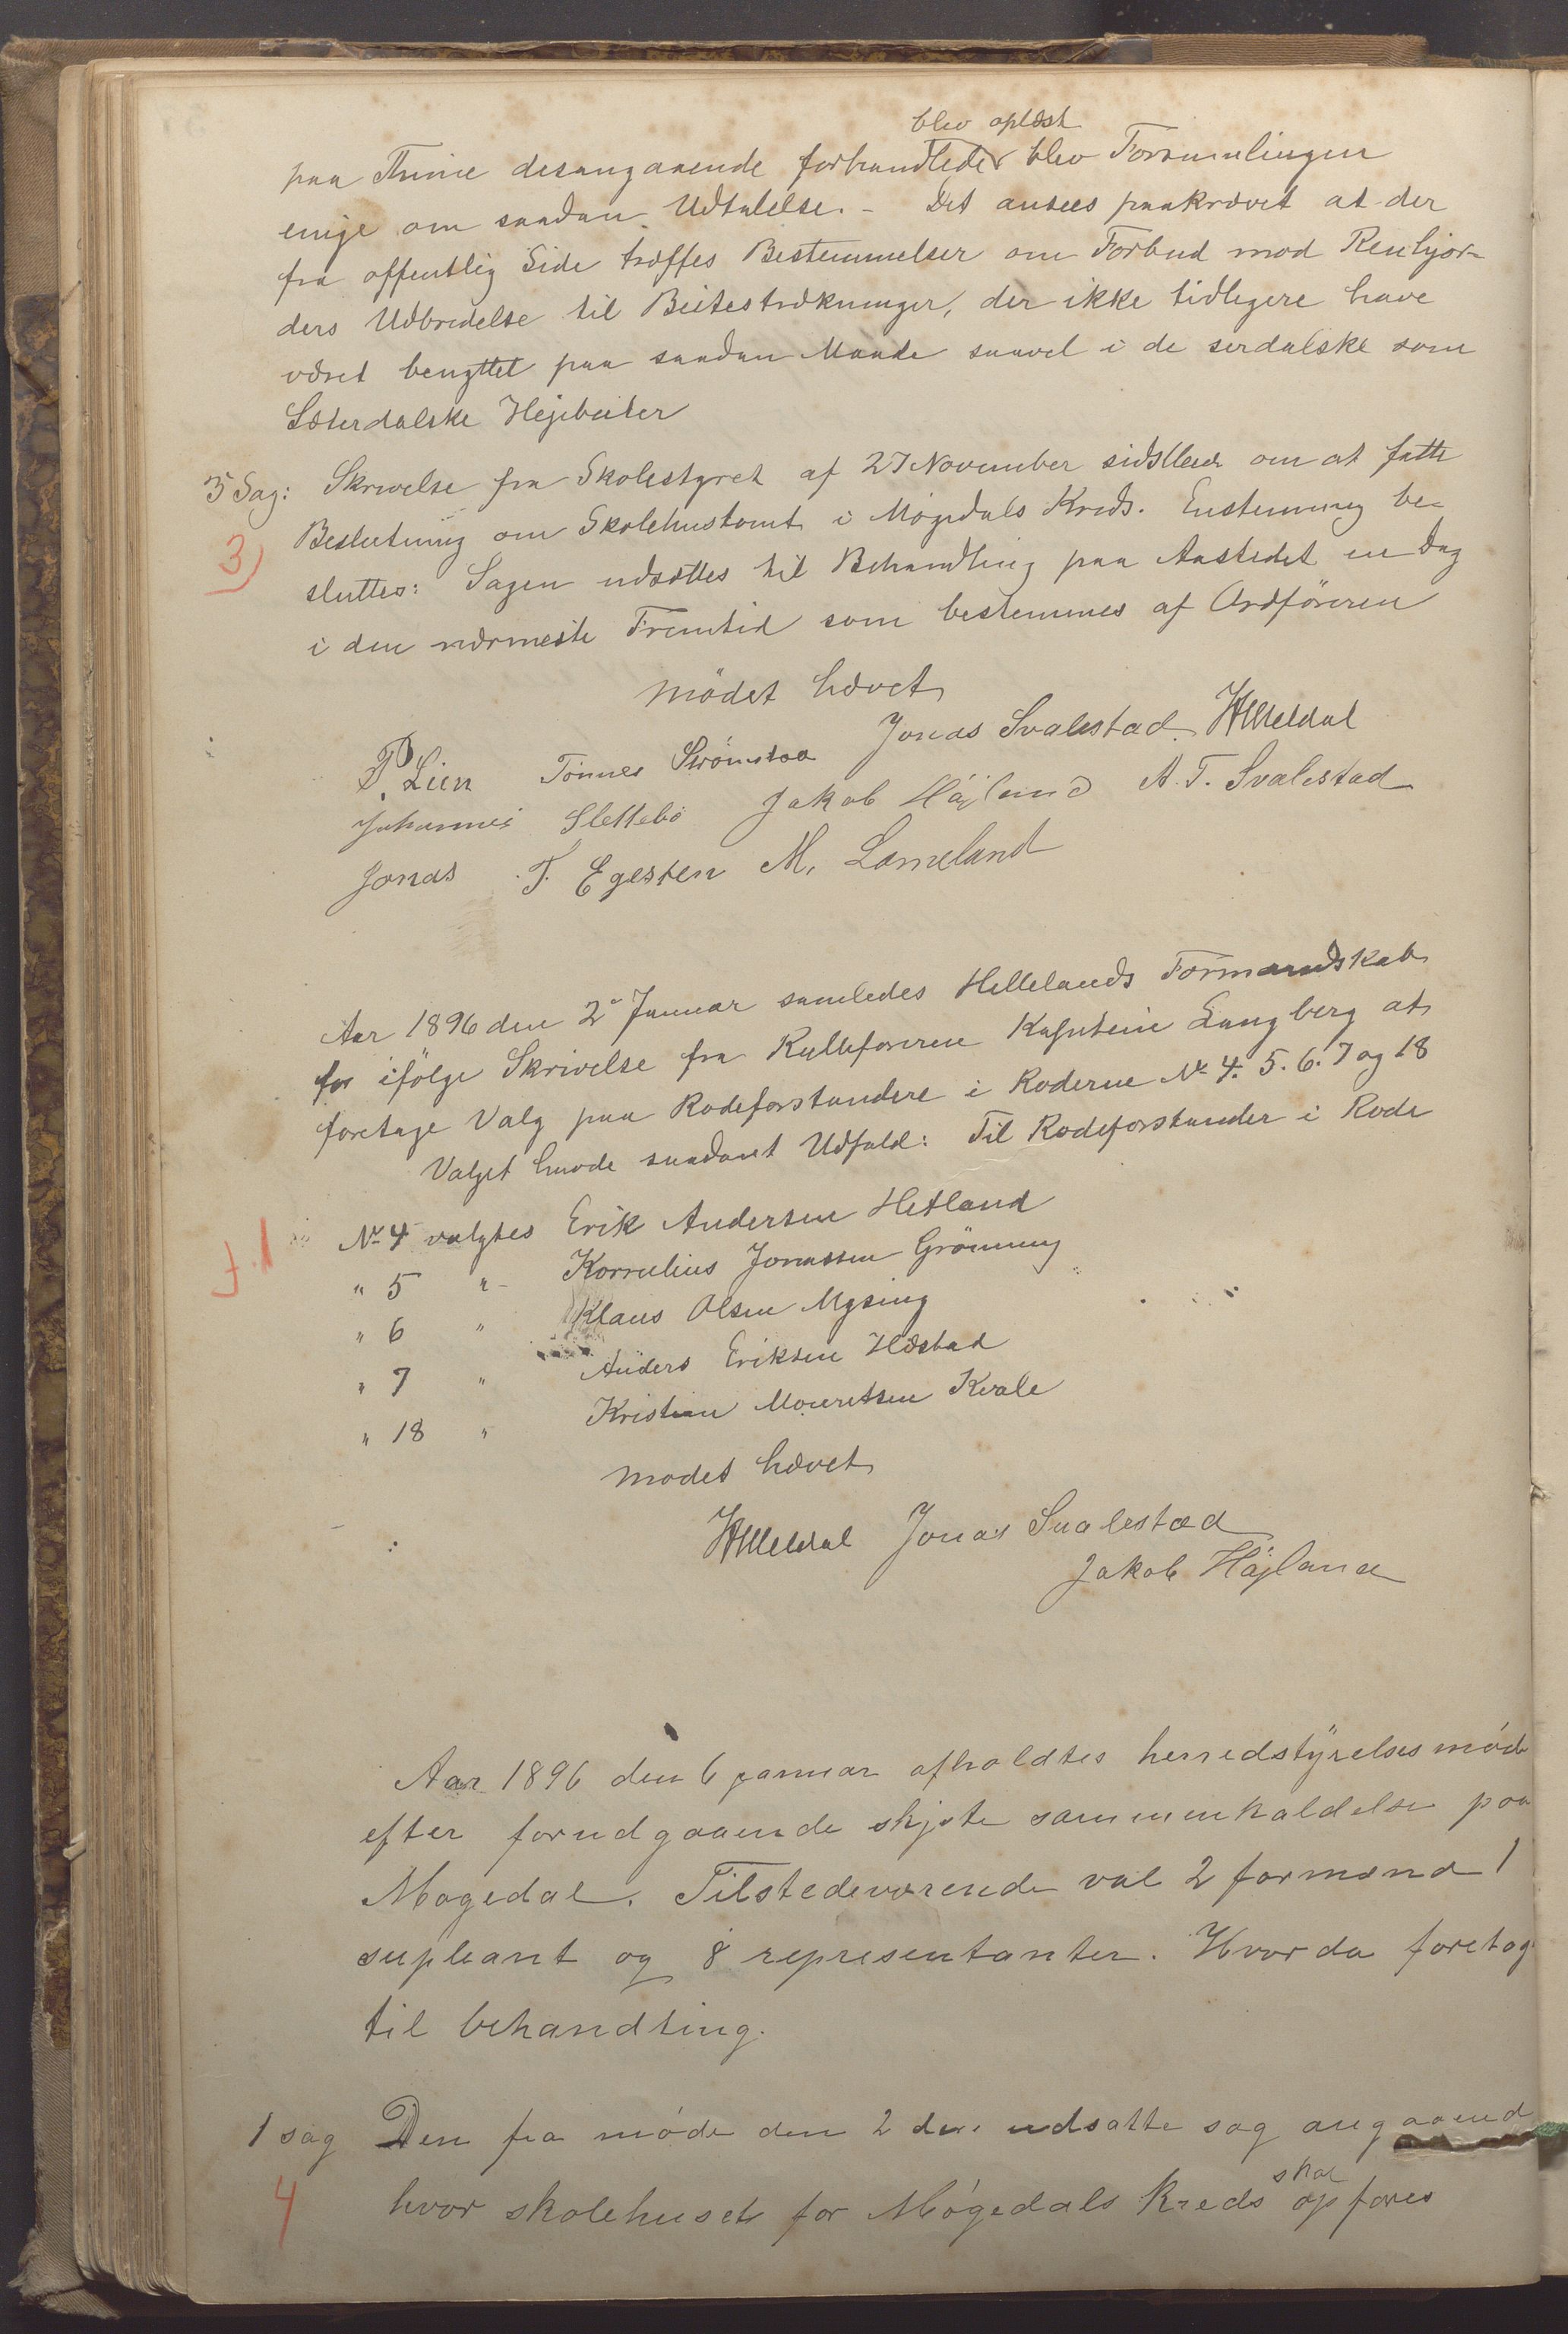 blev oplæst
paa Thime desangaaende forhandledes blev Forsamlingen
enige om saadan Udtalelse. - Det ansees paakrævet at der
fra offentlig Side træffes Bestemmelser om Forbud mod Renhjor-
ders Udbredelse til Beitestrækninger, der ikke tidligere have
været benyttet paa saadan Maade saavel i de serdalske som
Sæterdalske Hejebeiter
3 Sag: Skrivelse fra Skolestyret af 27 November sidstleden om at fatte
Beslutning om Skolehustomt i Møgedals Kreds. Enstemmig be-
3)
sluttes: Sagen udsættes til Behandling paa Aastedet en Dag
i den nærmeste Fremtid som bestemmes af Ordføreren
Mödet hævet
P. Lien Tönnes Strömstaa Jonas Svalestad. Meldal
Johannes Slettebö Jakob Häjland A. T. Svalestad
Jonas T. Egesten M. Lomeland
Aar 1896 den 2 Januar samledes Hellelands Formandskab
for ifölge Skrivelse fra Rulleføreren Kaptein Langberg at
foretage Valg paa Rodeforstandere i Roderne No 4. 5. 6. 7 og 18
Valget havde saadant Udfald: Til Rodeforstander i Rode
No 4 valgtes Erik Andersen Hetland
f. 1
" 5 " Kornelius Jonassen Grönning
" 6 " Klaus Olsen Mysing
" 7 " Anders Eriksen Hæstad
" 18 " Kristian Mouritsen Kvale
Mødet hævet
Meldal Jonas Svalestad
Jakob Häjland
Aar 1896 den 6 januar afholdtes herredstyrelsesmöde
efter forudgaaende skjete sammenkaldelse paa
Møgedal. Tilstedeværende val 2 formænd 1
supleant og 8 representanter. Hvorda foretog
til behandling.
1 sag Den fra møde den 2 ds. udsatte sag angaaend
skal
4 hvor skolehuset for Møgedals Kreds opføres